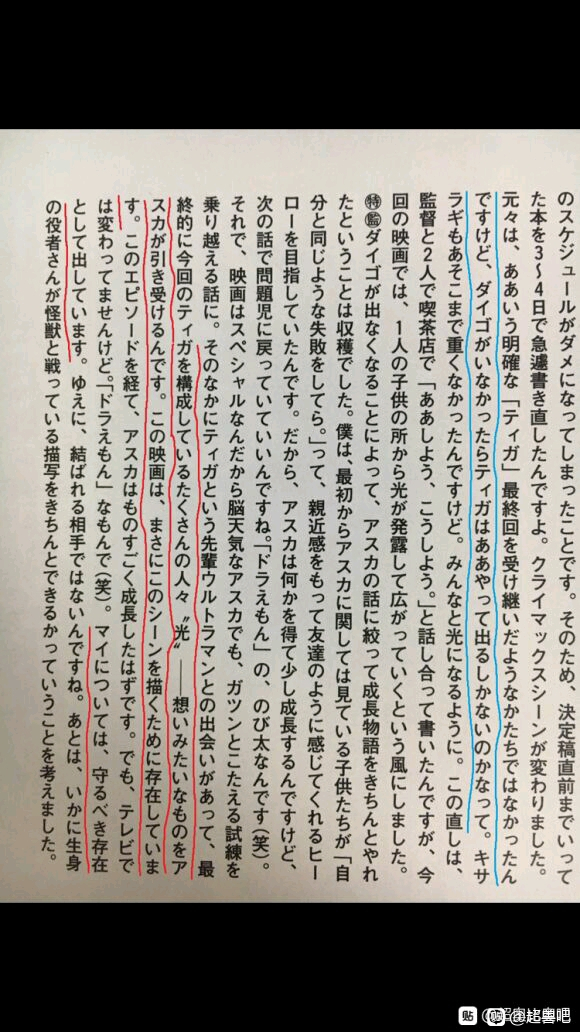 のスケジュールがダメになってしまったことです。そのため、決定稿直前までいって
た本を3〜4日で急遽書き直したんですよ。クライマックスシーンが変わりました。
元々は、ああいう明確な「ティガ」最終回を受け継いだようなかたちではなかったん
ですけど、ダイゴがいなかったらティガはああやって出るしかないのかなって。キサ
ラギもあそこまで重くなかったんですけど。みんなと光になるように。この直しは、
監督と2人で喫茶店で「ああしよう、こうしよう。」と話し合って書いたんですが、今
回の映画では、1人の子供の所から光が発露して広がっていくという風にしました。
㊕㊬ダイゴが出なくなることによって、アスカの話に絞って成長物語をきちんとやれ
たということは収穫でした。僕は、最初からアスカに関しては見ている子供たちが「自
分と同じような失敗をしてら。」って、親近感をもって友達のように感じてくれるヒー
ローを目指していたんです。だから、アスカは何かを得て少し成長するんですけど、
次の話で問題児に戻っていていいんですね。「ドラえもん」の、のび太なんです(笑)。
それで、映画はスペシャルなんだから脳天気なアスカでも、ガツンとこたえる試練を
乗り越える話に。そのなかにティガという先輩ウルトラマンとの出会いがあって、最
終的に今回のティガを構成しているたくさんの人々〝光〟――想いみたいなものをア
スカが引き受けるんです。この映画は、まさにこのシーンを描くために存在していま
す。このエピソードを経て、アスカはものすごく成長したはずです。でも、テレビで
は変わってませんけど。「ドラえもん」なもんで(笑)。マイについては、守るべき存在
として出しています。ゆえに、結ばれる相手ではないんですね。あとは、いかに生身
の役者さんが怪獣と戦っている描写をきちんとできるかっていうことを考えました。